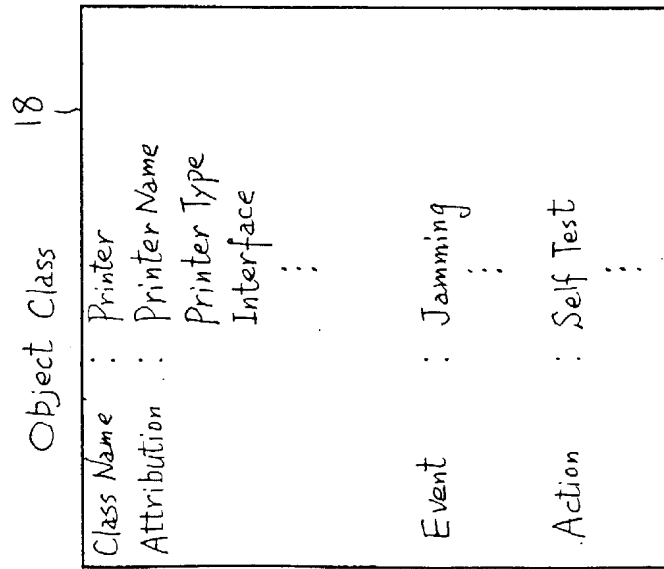 Object Class 18
Class Name : Printer
Attribution : Printer Name
Printer Type
Interface
:
Event : Jamming
:
Action : Self Test
: